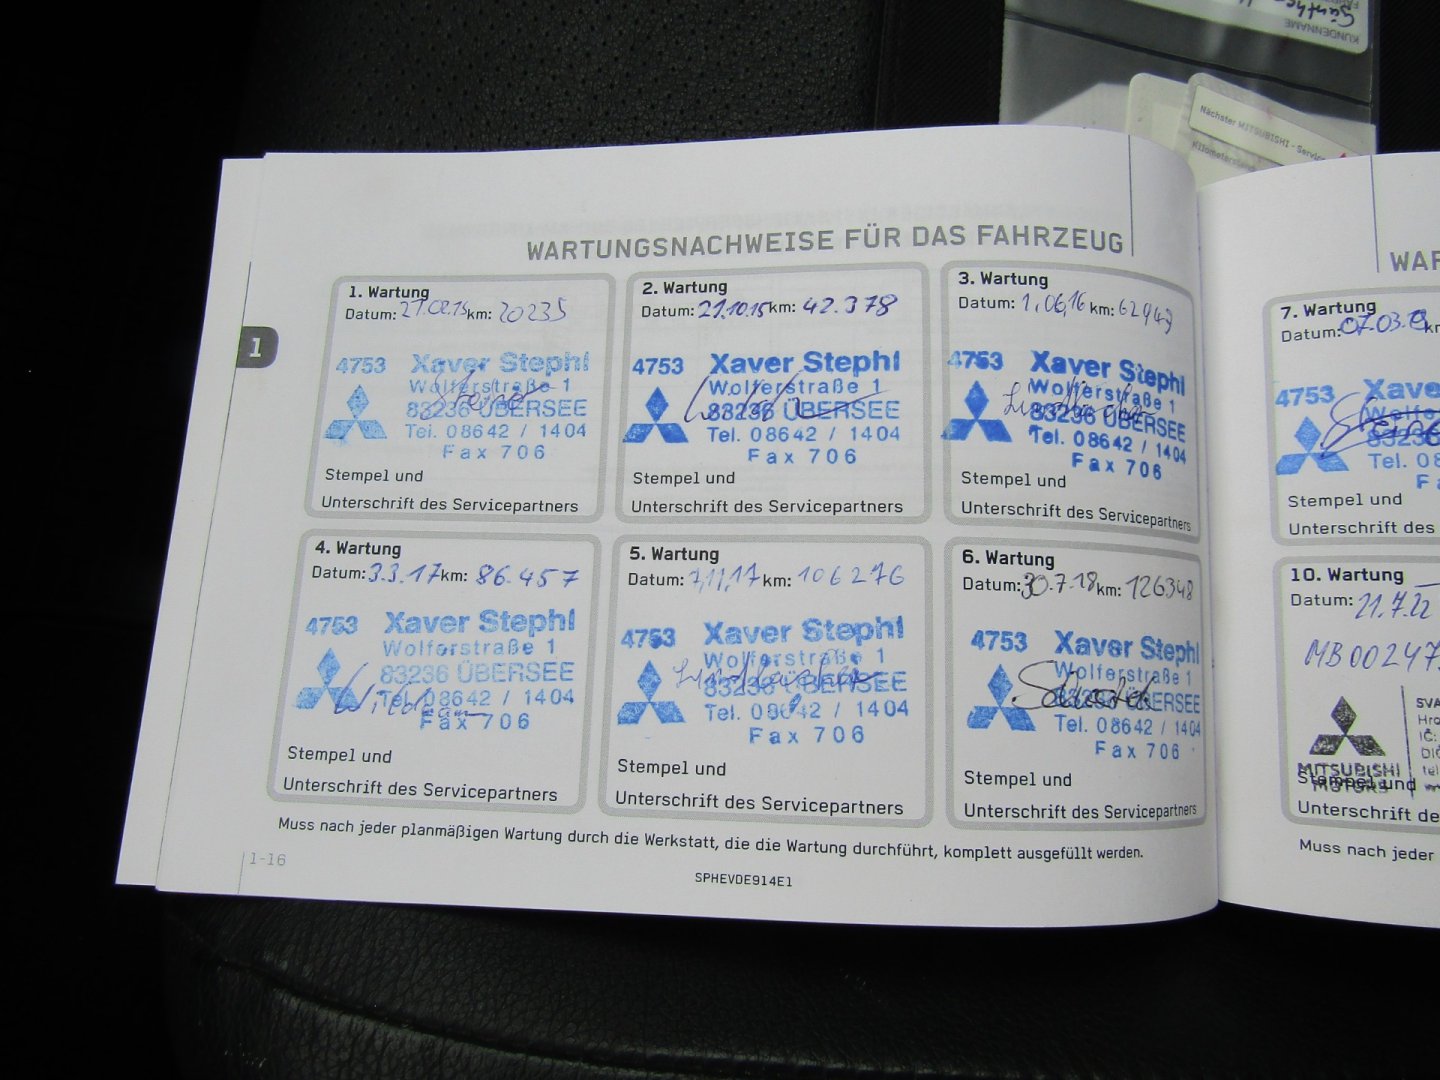 KUNDENNAME
Nächster MITSUBISHI - Servic
WARTUNGSNACHWEISE FÜR DAS FAHRZEUG
1
1. Wartung
Datum: 27.02.15 km: 20235
4753 Xaver Stephl
Wolferstraße 1
83236 ÜBERSEE
Tel. 08642 / 1404
Fax 706
Stempel und
Unterschrift des Servicepartners
2. Wartung
Datum: 21.10.15 km: 42.378
4753 Xaver Stephl
Wolferstraße 1
83236 ÜBERSEE
Tel. 08642 / 1404
Fax 706
Stempel und
Unterschrift des Servicepartners
3. Wartung
Datum: 1.06.16 km: 62943
4753 Xaver Stephl
Wolferstraße 1
83236 ÜBERSEE
Tel. 08642 / 1404
Fax 706
Stempel und
Unterschrift des Servicepartners
4. Wartung
Datum: 3.3.17 km: 86.457
4753 Xaver Stephl
Wolferstraße 1
83236 ÜBERSEE
Tel. 08642 / 1404
Fax 706
Stempel und
Unterschrift des Servicepartners
5. Wartung
Datum: 7.11.17 km: 106276
4753 Xaver Stephl
Wolferstraße 1
83236 ÜBERSEE
Tel. 08642 / 1404
Fax 706
Stempel und
Unterschrift des Servicepartners
6. Wartung
Datum: 30.7.18 km: 126348
4753 Xaver Stephl
Wolferstraße 1
83236 ÜBERSEE
Tel. 08642 / 1404
Fax 706
Stempel und
Unterschrift des Servicepartners
Muss nach jeder planmäßigen Wartung durch die Werkstatt, die die Wartung durchführt, komplett ausgefüllt werden.
1-16
SPHEVDE914E1
WAR
7. Wartung
Datum: 07.03.19 km
4753 Xave
Wolfe
83236
Tel. 08
F
Stempel und
Unterschrift des
10. Wartung
Datum: 21.7.22
MB00247
SVA
Hro
IČ:
DIČ
tel
MITSUBISHI
MOTORS
Stempel und
Unterschrift de
Muss nach jeder